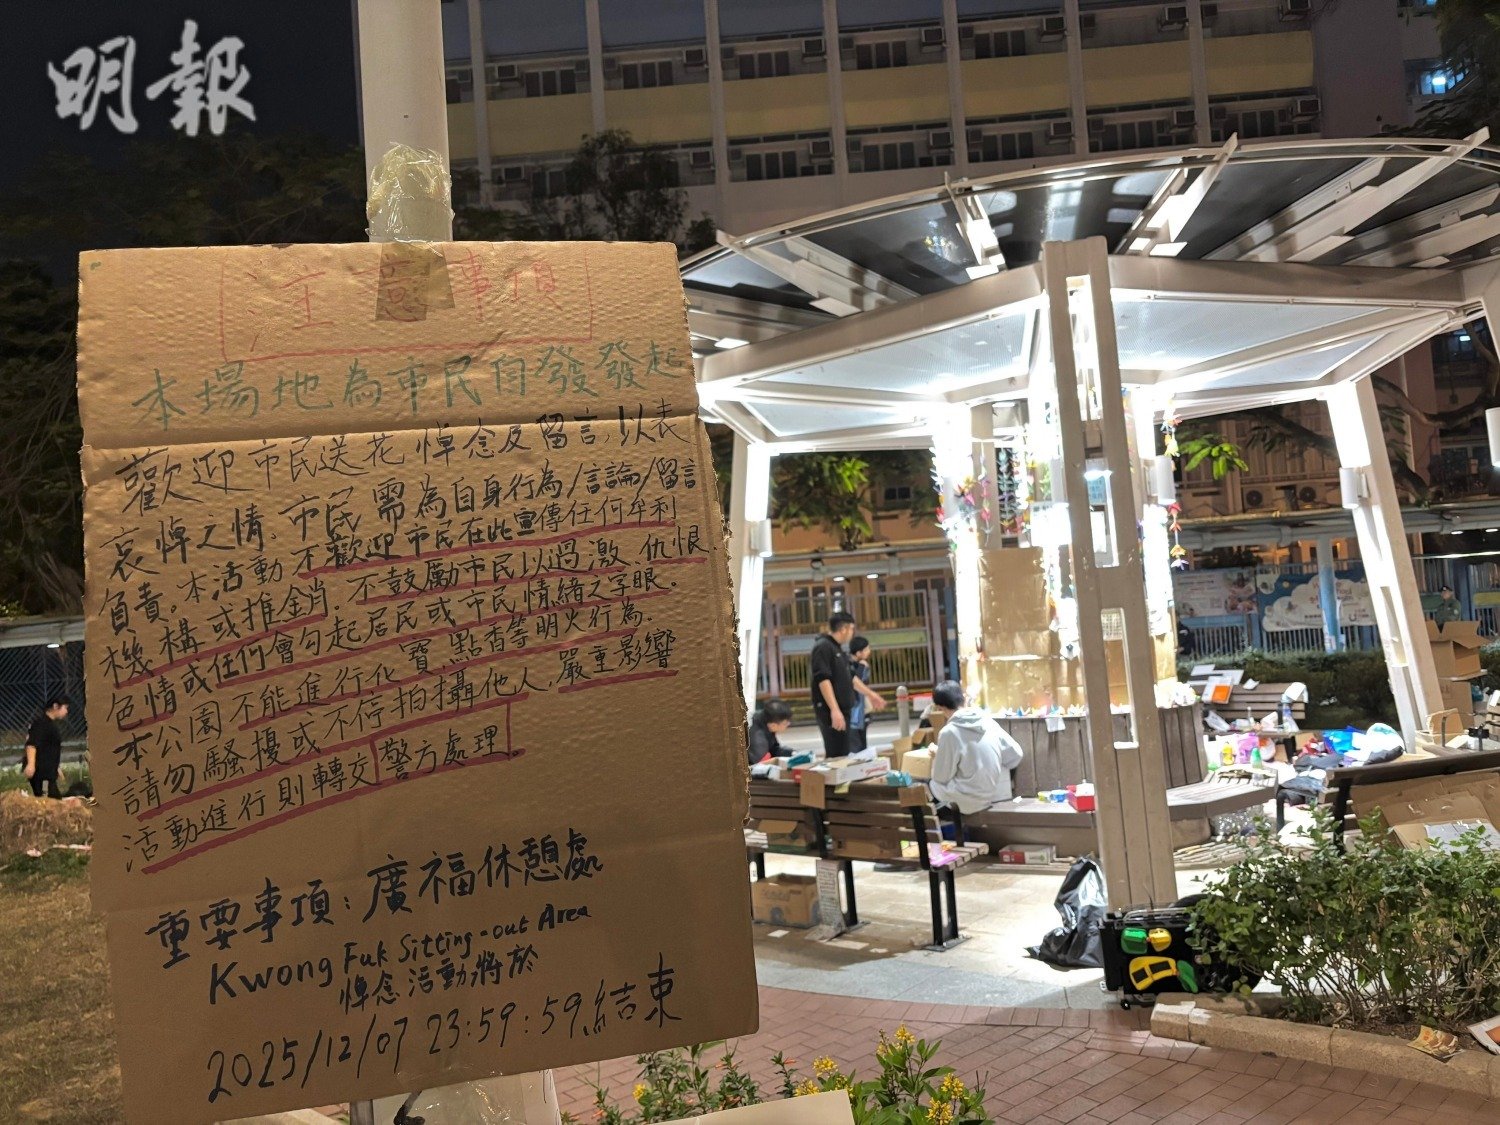 明報
注意事項
本場地為市民自發發起
歡迎市民送花悼念及留言,以表
哀悼之情、市民需為自身行為/言論/留言
負責。本活動不歡迎市民在此宣傳任何牟利
機構或推銷.不鼓勵市民以過激、仇恨.
色情或任何會勾起居民或市民情緒之字眼。
本公園不能進行化寶.點香等明火行為.
請勿騷擾或不停拍攝他人,嚴重影響
活動進行則轉交警方處理。
重要事項:廣福休憩處
Kwong Fuk Sitting-out Area
悼念活動將於
2025/12/07 23:59:59結束